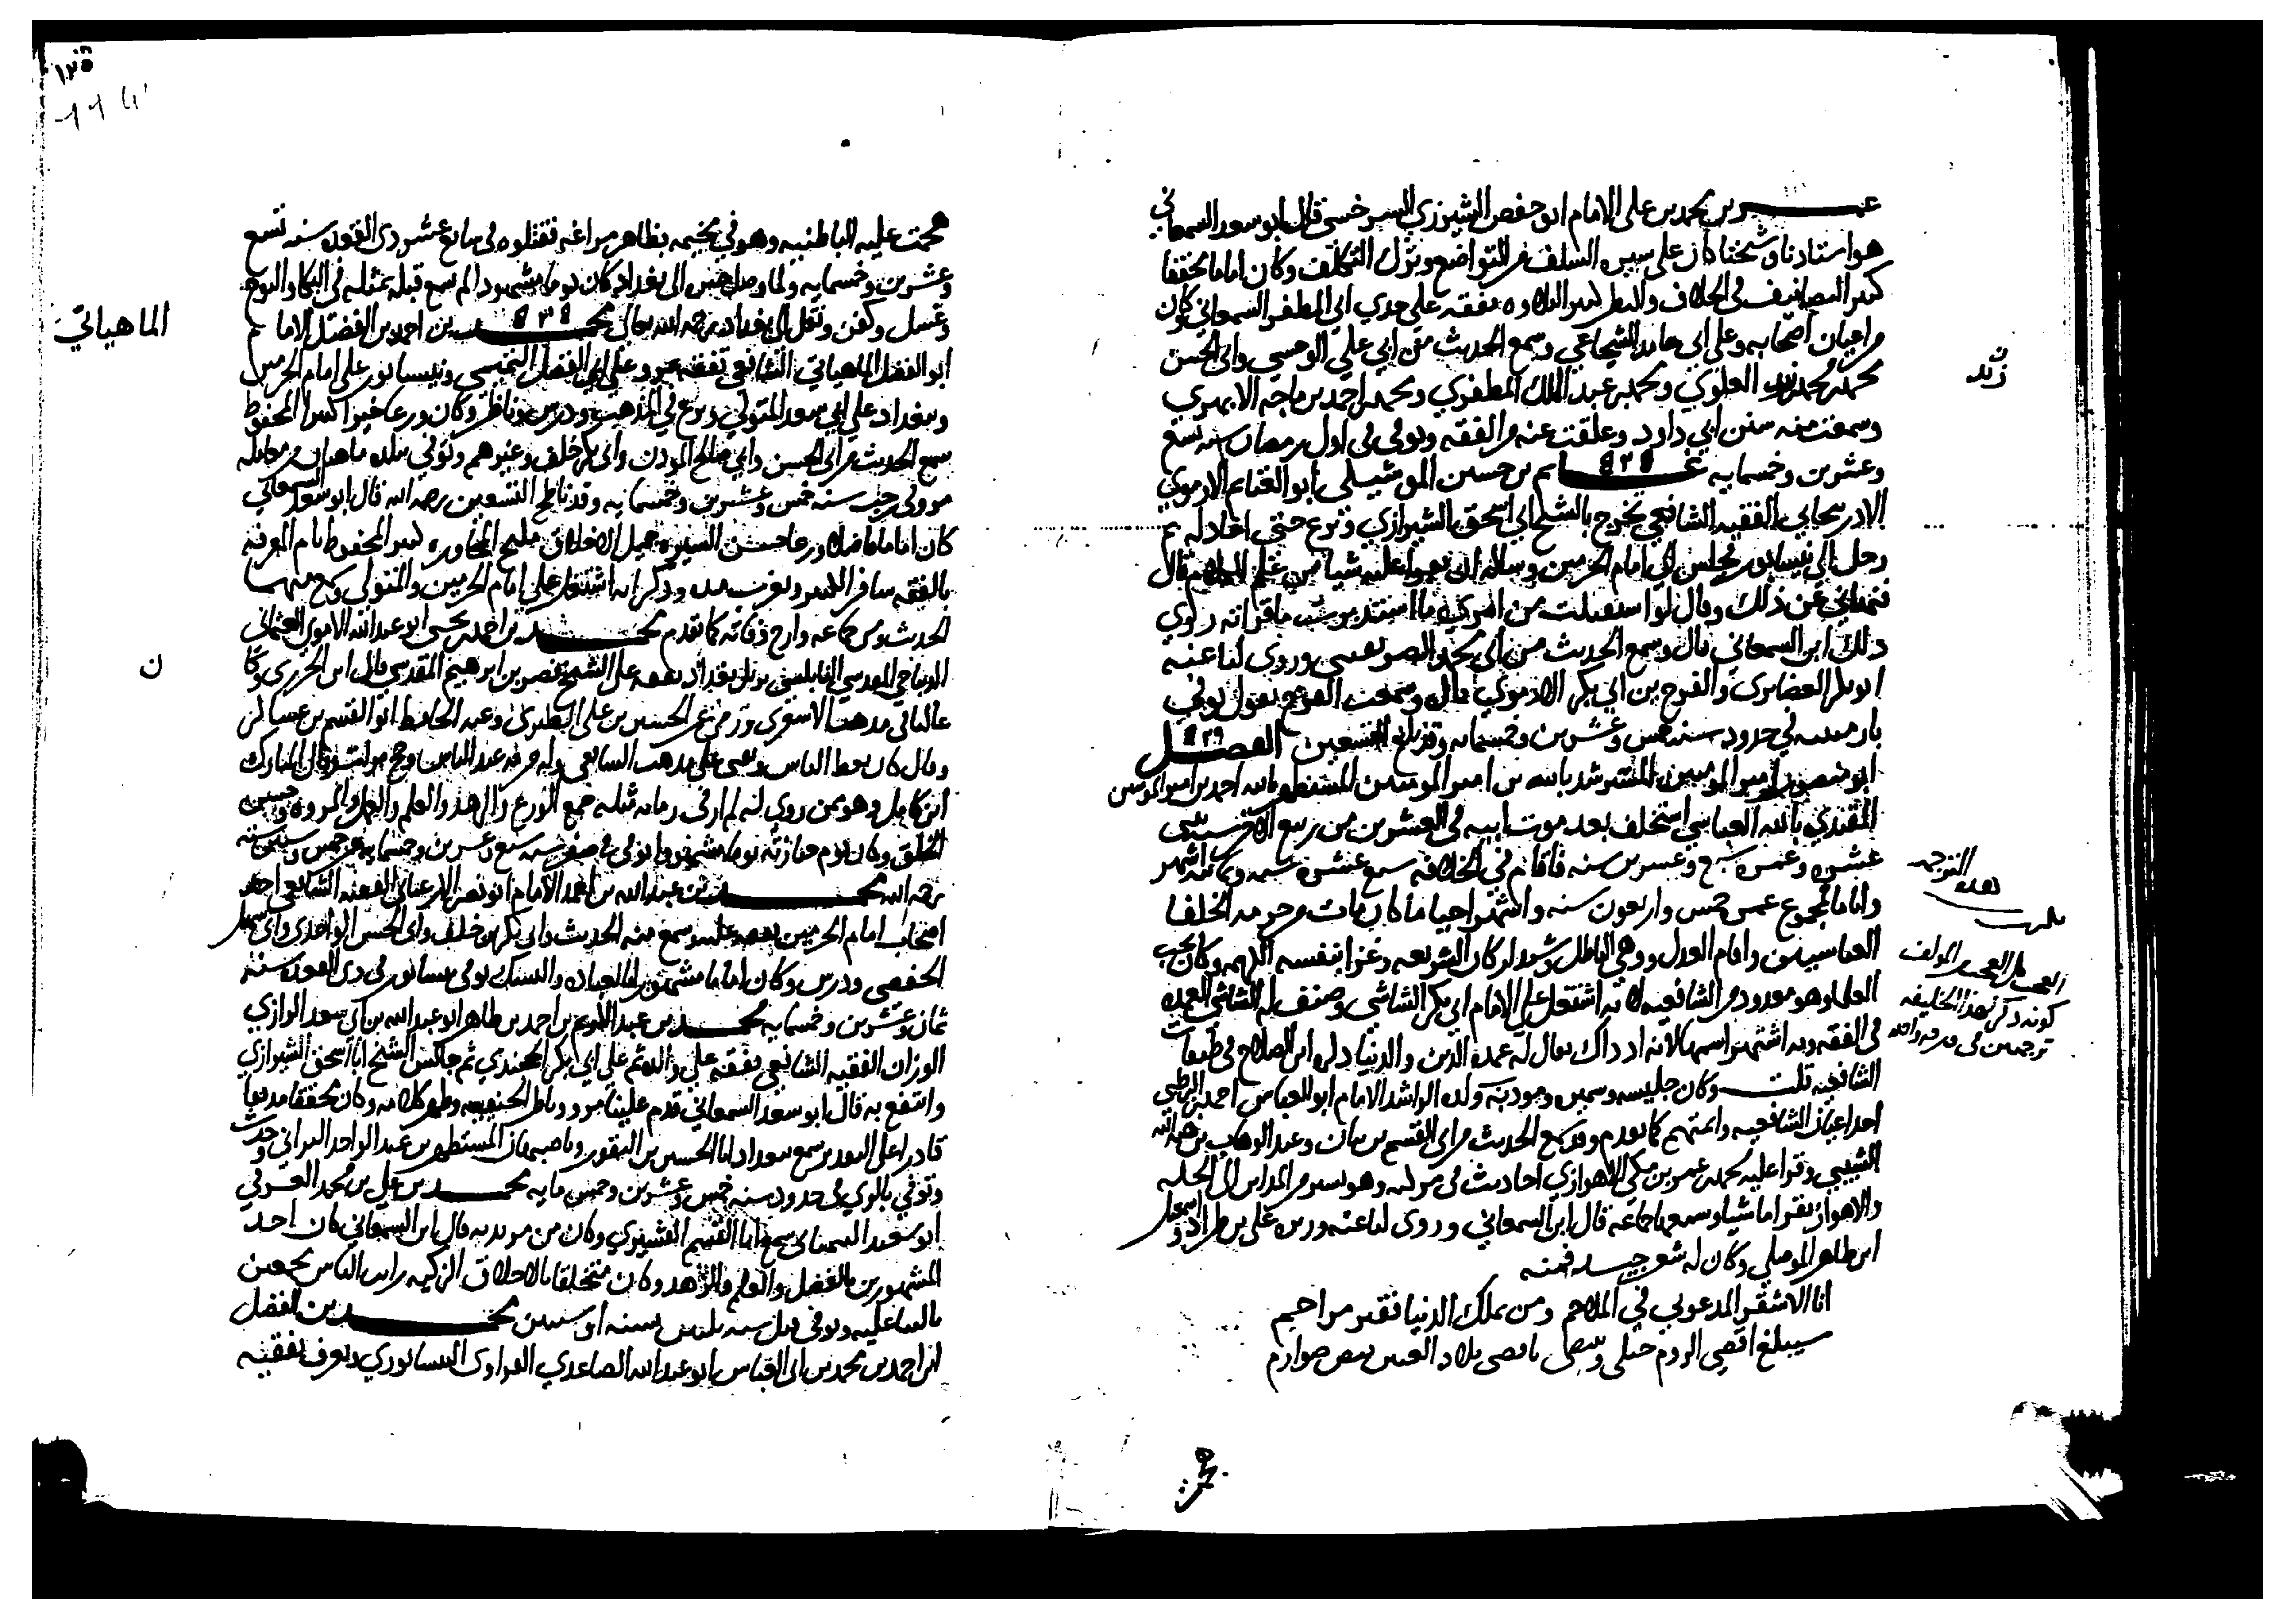 عمر بن محمد بن علي الامام ابو حفص الشيرزي السرخسي قال ابو سعد السمعاني
هو استادنا وشيخنا كان على سيره السلف من التواضع وترك التكلف وكان اماما محققا
كثير التصانيف في الخلاف والنظر كثير التلاوه تفقه على جدي ابي المظفر السمعاني وكان
من اعيان اصحابه وعلى ابي حامد الشجاعي وسمع الحديث من ابي علي الوحشي وابي الحسن
محمد بن محمد زيد العلوي ومحمد بن عبد الملك المظفري ومحمد بن احمد بن ماجه الابهري
وسمعت منه سنن ابي داود وعلقت عنه من الفقه وتوفي في اول رمضان سنه تسع
وعشرين وخمسمايه ٥٢٩ غانم بن حسين الموشيلي ابو الغنايم الارموي
الاذربيجاني الفقيه الشافعي تخرج بالشيخ ابي اسحق الشيرازي وبرع حتى
رحل الى نيسابور فجلس الى امام الحرمين وساله ان يقرا عليه شيا من علم الكلام قال
فنهاني عن ذلك وقال لو استقبلت من امري ما استدبرت ما قراته روي
ذلك ابن السمعاني قال وسمع الحديث من ابي محمد الصريفيني وروى لنا عنه
ابو بكر الغضايري والفرج بن ابي بكر الارموي قال وسمعت الفرج يقول توفي
بارمينيه في حدود سنه خمس وعشرين وخمسمايه وقد بلغ التسعين ٥٢٩ الفضل
ابو منصور امير المومنين المسترشد بالله بن امير المومنين المستظهر بالله احمد بن امير المومنين
المقتدي بالله العباسي استخلف بعد موت ابيه في العشرين من ربيع الاخر سنه ثنتي
عشره وعمره سبع وعشرين سنه فاقام في الخلافه سبع عشره سنه وثمانيه اشهر
واياما مجموع عمره خمس واربعون سنه واشهر احيا ما كان مات من حرمه الخلفا
العباسيين واقام العدل ووهي الباطل وشيد اركان الشريعه وغزا بنفسه الكريمه وكان يحب
العلما وهو معدود من الشافعيه لانه اشتغل على الامام ابي بكر الشاشي وصنف له الشاشي العمده
في الفقه وبه اشتهر اسمها لانه اذ ذاك يقال له عمده الدين والدنيا ذكره ابن الصلاح في طبقات
الشافعيه قلت وكان جليسه وسميره ومودبه وولده الراشد الامام ابو العباس احمد بن الرطبي
احد اعيان الشافعيه وايمتهم كما تقدم وقد سمع الحديث من ابي القسم بن بيان وعبد الوهاب بن هبه الله
السيبي وقرا عليه محمد بن عمر بن مكي الاهوازي احاديث في موكبه وهو يسير من المداين الى الحله
والاهوازي يقرا ماشيا وسمعها جماعه قال ابن السمعاني وروى لنا عنه وزيره علي بن طراد واسمعيل
ابن طاهر الموصلي وكان له شعر جيد فمنه
انا الاشقر المدعو بي في الملاحم ومن يملك الدنيا بغير مزاحم
سيبلغ اقصى الروم خيلي وينتضى باقصى بلاد الصين بيض صوارم
زيد
هذه الترجمه
العجب كل العجب من المولف
كونه ذكر لهذا الخليفه
ترجمتين في ورقه واحده
هجمت عليه الباطنيه وهو في مخيمه بظاهر مراغه فقتلوه في سابع عشر ذي القعده سنه تسع
وعشرين وخمسمايه ولما وصل خبره الى بغداد كان يوما مشهودا لم يسمع قبله بمثله في البكا والنوح
وغسل وكفن ونقل الى بغداد رحمه الله تعالى ٥٢٥ محمد بن احمد بن الفضل الامام
ابو الفضل الماهياني الشافعي تفقه بمرو على ابي الفضل التميمي وبنيسابور على امام الحرمين
وببغداد على ابي سعد المتولي وبرع في المذهب ودرس وناظر وكان ورعا خيرا كثير المحفوظ
سمع الحديث من ابي الحسن وابي صالح الموذن وابي بكر بن خلف وغيرهم وتوفي ببلده ماهيان من
مرو في رجب سنه خمس وعشرين وخمسمايه وقد ناطح التسعين رحمه الله قال ابو سعد السمعاني
كان اماما فاضلا ورعا حسن السيره جميل الاخلاق مليح المحاوره كثير المحفوظ تام المعرفه
بالفقه سافر الكثير وتغرب مده وذكر انه اشتغل على امام الحرمين والمتولي وسمع منهما
الحديث ومن جماعه وارخ وفاته كما تقدم محمد بن احمد بن يحيى ابو عبد الله الاموي العثماني
الديباجي المقدسي النابلسي نزيل بغداد تفقه على الشيخ نصر بن ابرهيم المقدسي قال ابن الجوزي وكان
غاليا في مذهب الاشعري وروى عن الحسين بن علي الطبري وعنه الحافظ ابو القسم بن عساكر
وقال كان يعظ الناس ويفتي على مذهب الشافعي وله حرمه عند الناس وحج مرات وقال المبارك
ابن كامل وهو ممن روى له لم ار في زمانه مثله جمع الورع والزهد والعلم والعمل والمروه وحسن
الخلق وكان يوم جنازته يوما مشهودا توفي في صفر سنه سبع وعشرين وخمسمايه عن خمس وستين سنه
رحمه الله محمد بن عبد الله بن احمد الامام ابو نصر الارغياني الفقيه الشافعي احد
اصحاب امام الحرمين تفقه عليه وسمع منه الحديث وابي بكر بن خلف وابي الحسن الواحدي وابي سهل
الحفصي ودرس وكان اماما مشهورا بالعباده والنسك توفي بنيسابور في ذي القعده سنه
ثمان وعشرين وخمسمايه محمد بن عبد الكريم بن احمد بن طاهر ابو عبد الله بن ابي سعد الرازي
الوزان الفقيه الشافعي تفقه على والده ثم على ابي بكر الخجندي ثم جالس الشيخ ابا اسحق الشيرازي
وانتفع به قال ابو سعد السمعاني قدم علينا مرو وناظر الحنفيه وظهر كلامه وكان محققا مدققا
قادرا على التدريس سمع ببغداد ابا الحسين بن النقور وباصبهان المستظهر بن عبد الواحد البزاني وحدث
وتوفي بالري في حدود سنه خمس وعشرين وخمس مايه محمد بن علي بن محمد
ابو سعيد السمناني سمع ابا القسم القشيري وكان من مريديه قال ابن السمعاني كان احد
المشهورين بالفضل والعلم والزهد وكان متخلقا بالاخلاق الزكيه رايت الناس مجمعين
بالثنا عليه وتوفي قبل سنه ثلثين بسنه او سنتين محمد بن الفضل
ابن احمد بن محمد بن ابي العباس ابو عبد الله الصاعدي الفراوي النيسابوري ويعرف بفقيه
الماهيانيّ
ن